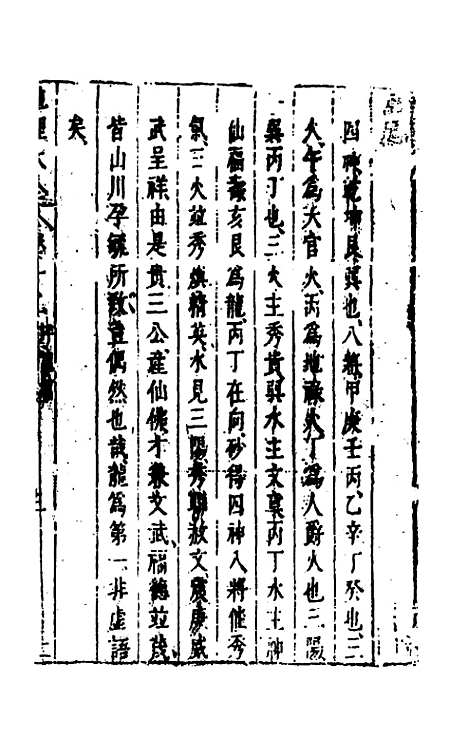 四神乾坤艮巽也八將甲庚壬丙乙辛丁癸也三
火午爲天官火丙爲地祿火丁爲人爵火也三陽
巽丙丁也三火主秀貴巽水主文章丙丁水主神
仙福壽亥艮爲龍丙丁在向砂得四神八將催秀
氣三火並秀煥精英水見三陽秀聯放文震庚威
武呈祥由是貴三公產仙佛才兼文武福德並茂
皆山川孕毓所致豈偶然也哉龍爲第一非虛語
矣